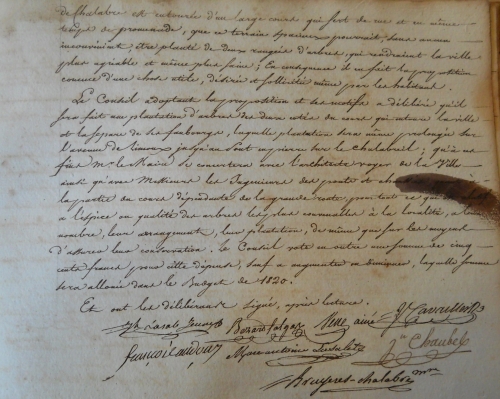 de Chalabre est entourée d'un large cours qui sert de rue et en même
temps de promenade, que ce terrain spacieux pourrait sans aucun
inconvénient, être planté de deux rangées d'arbres, qui rendraient la ville
plus agréable et même plus saine; En conséquence il en fait la proposition
comme d'une chose utile, désirée et sollicitée même par les habitants.
Le Conseil adoptant la proposition et ses motifs a délibéré qu'il
sera fait une plantation d'arbres des deux cotés du cours qui entoure la ville
et la sépare de ses faubourgs, laquelle plantation sera même prolongée sur
l'avenue de Limoux jusqu'au Pont en pierre sur le Chalabreil; qu'à
Mr. le Maire se concertera avec l'architecte voyer de la Ville
ainsi qu'avec Messieurs les Ingénieurs des ponts et
la partie du cours dépendante de la grande route pour tout ce qui
a l'espèce ou qualité des arbres les plus convenables à la localité, a leur
nombre, leur arrangement, leur plantation, de même que sur les moyens
d'assurer leur conservation. Le Conseil vote en outre une somme de cinq
cents francs pour cette dépense, sauf a augmenter ou diminuer, laquelle somme
sera allouée dans le Budget de 1820.
Et ont les délibérants signé, après lecture.
aîné
Marc antoine
Bruyeres-chalabre